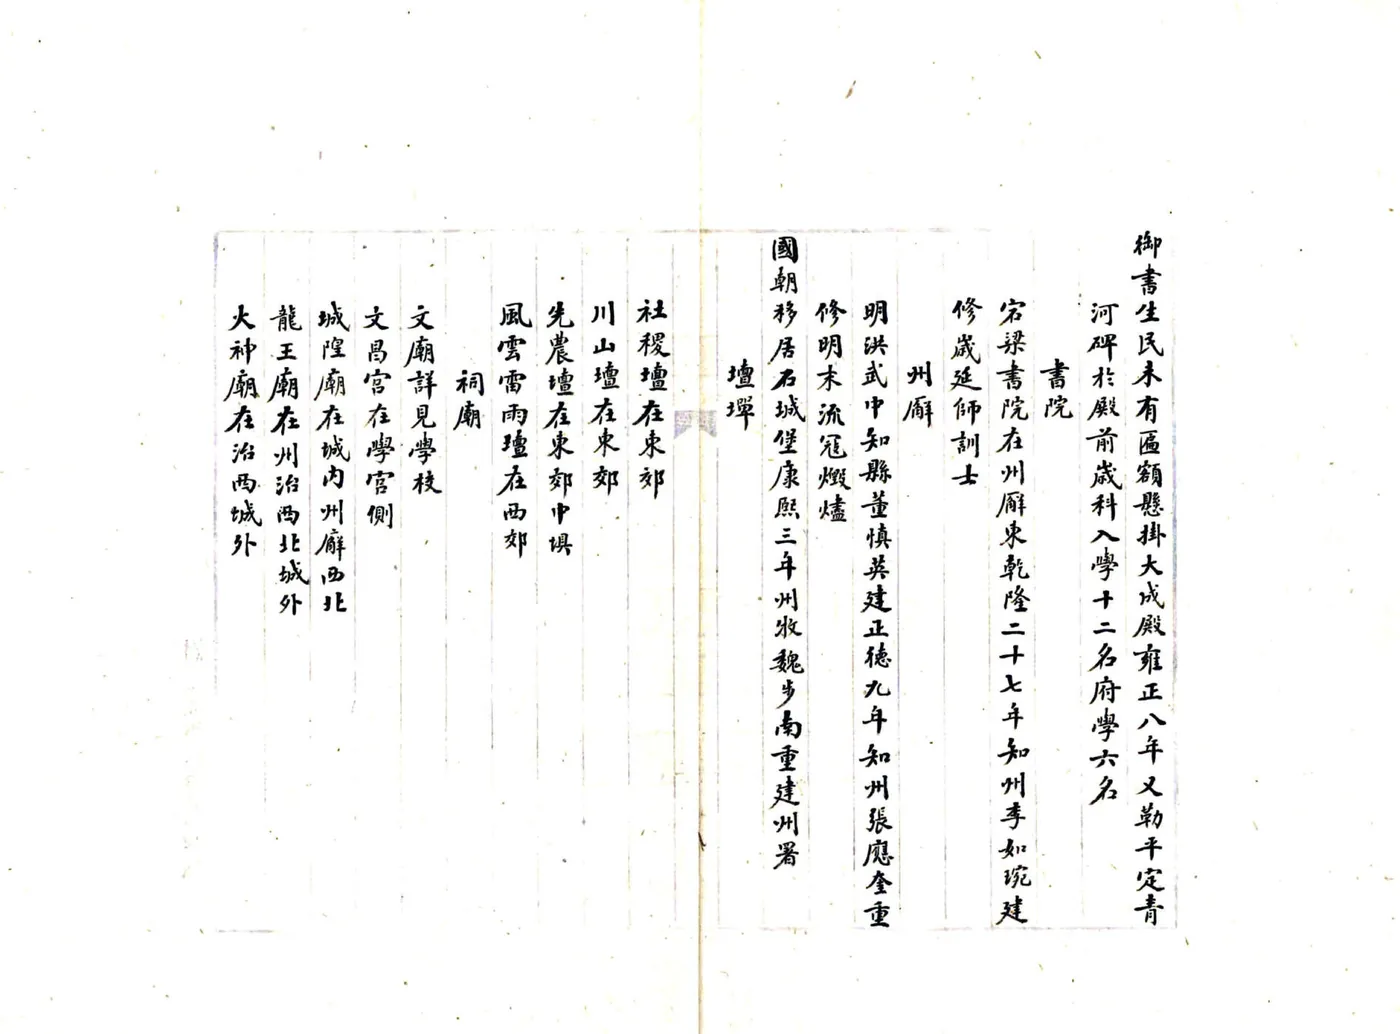 御書生民未有匾額懸掛大成殿雍正八年又勒平定青
河碑於殿前歲科入學十二名府學六名
書院
宕梁書院在州廨東乾隆二十七年知州李如琬建
修歲延師訓士
州廨
明洪武中知縣董慎英建正德九年知州張應奎重
修明末流冦燬燼
國朝移居石城堡康熙三年州牧魏步南重建州署
壇墠
社稷壇在東郊
川山壇在東郊
先農壇在東郊中塤
風雲雷雨壇在西郊
祠廟
文廟詳見學校
文昌宮在學宮側
城隍廟在城内州廨西北
龍王廟在州治西北城外
火神廟在治西城外